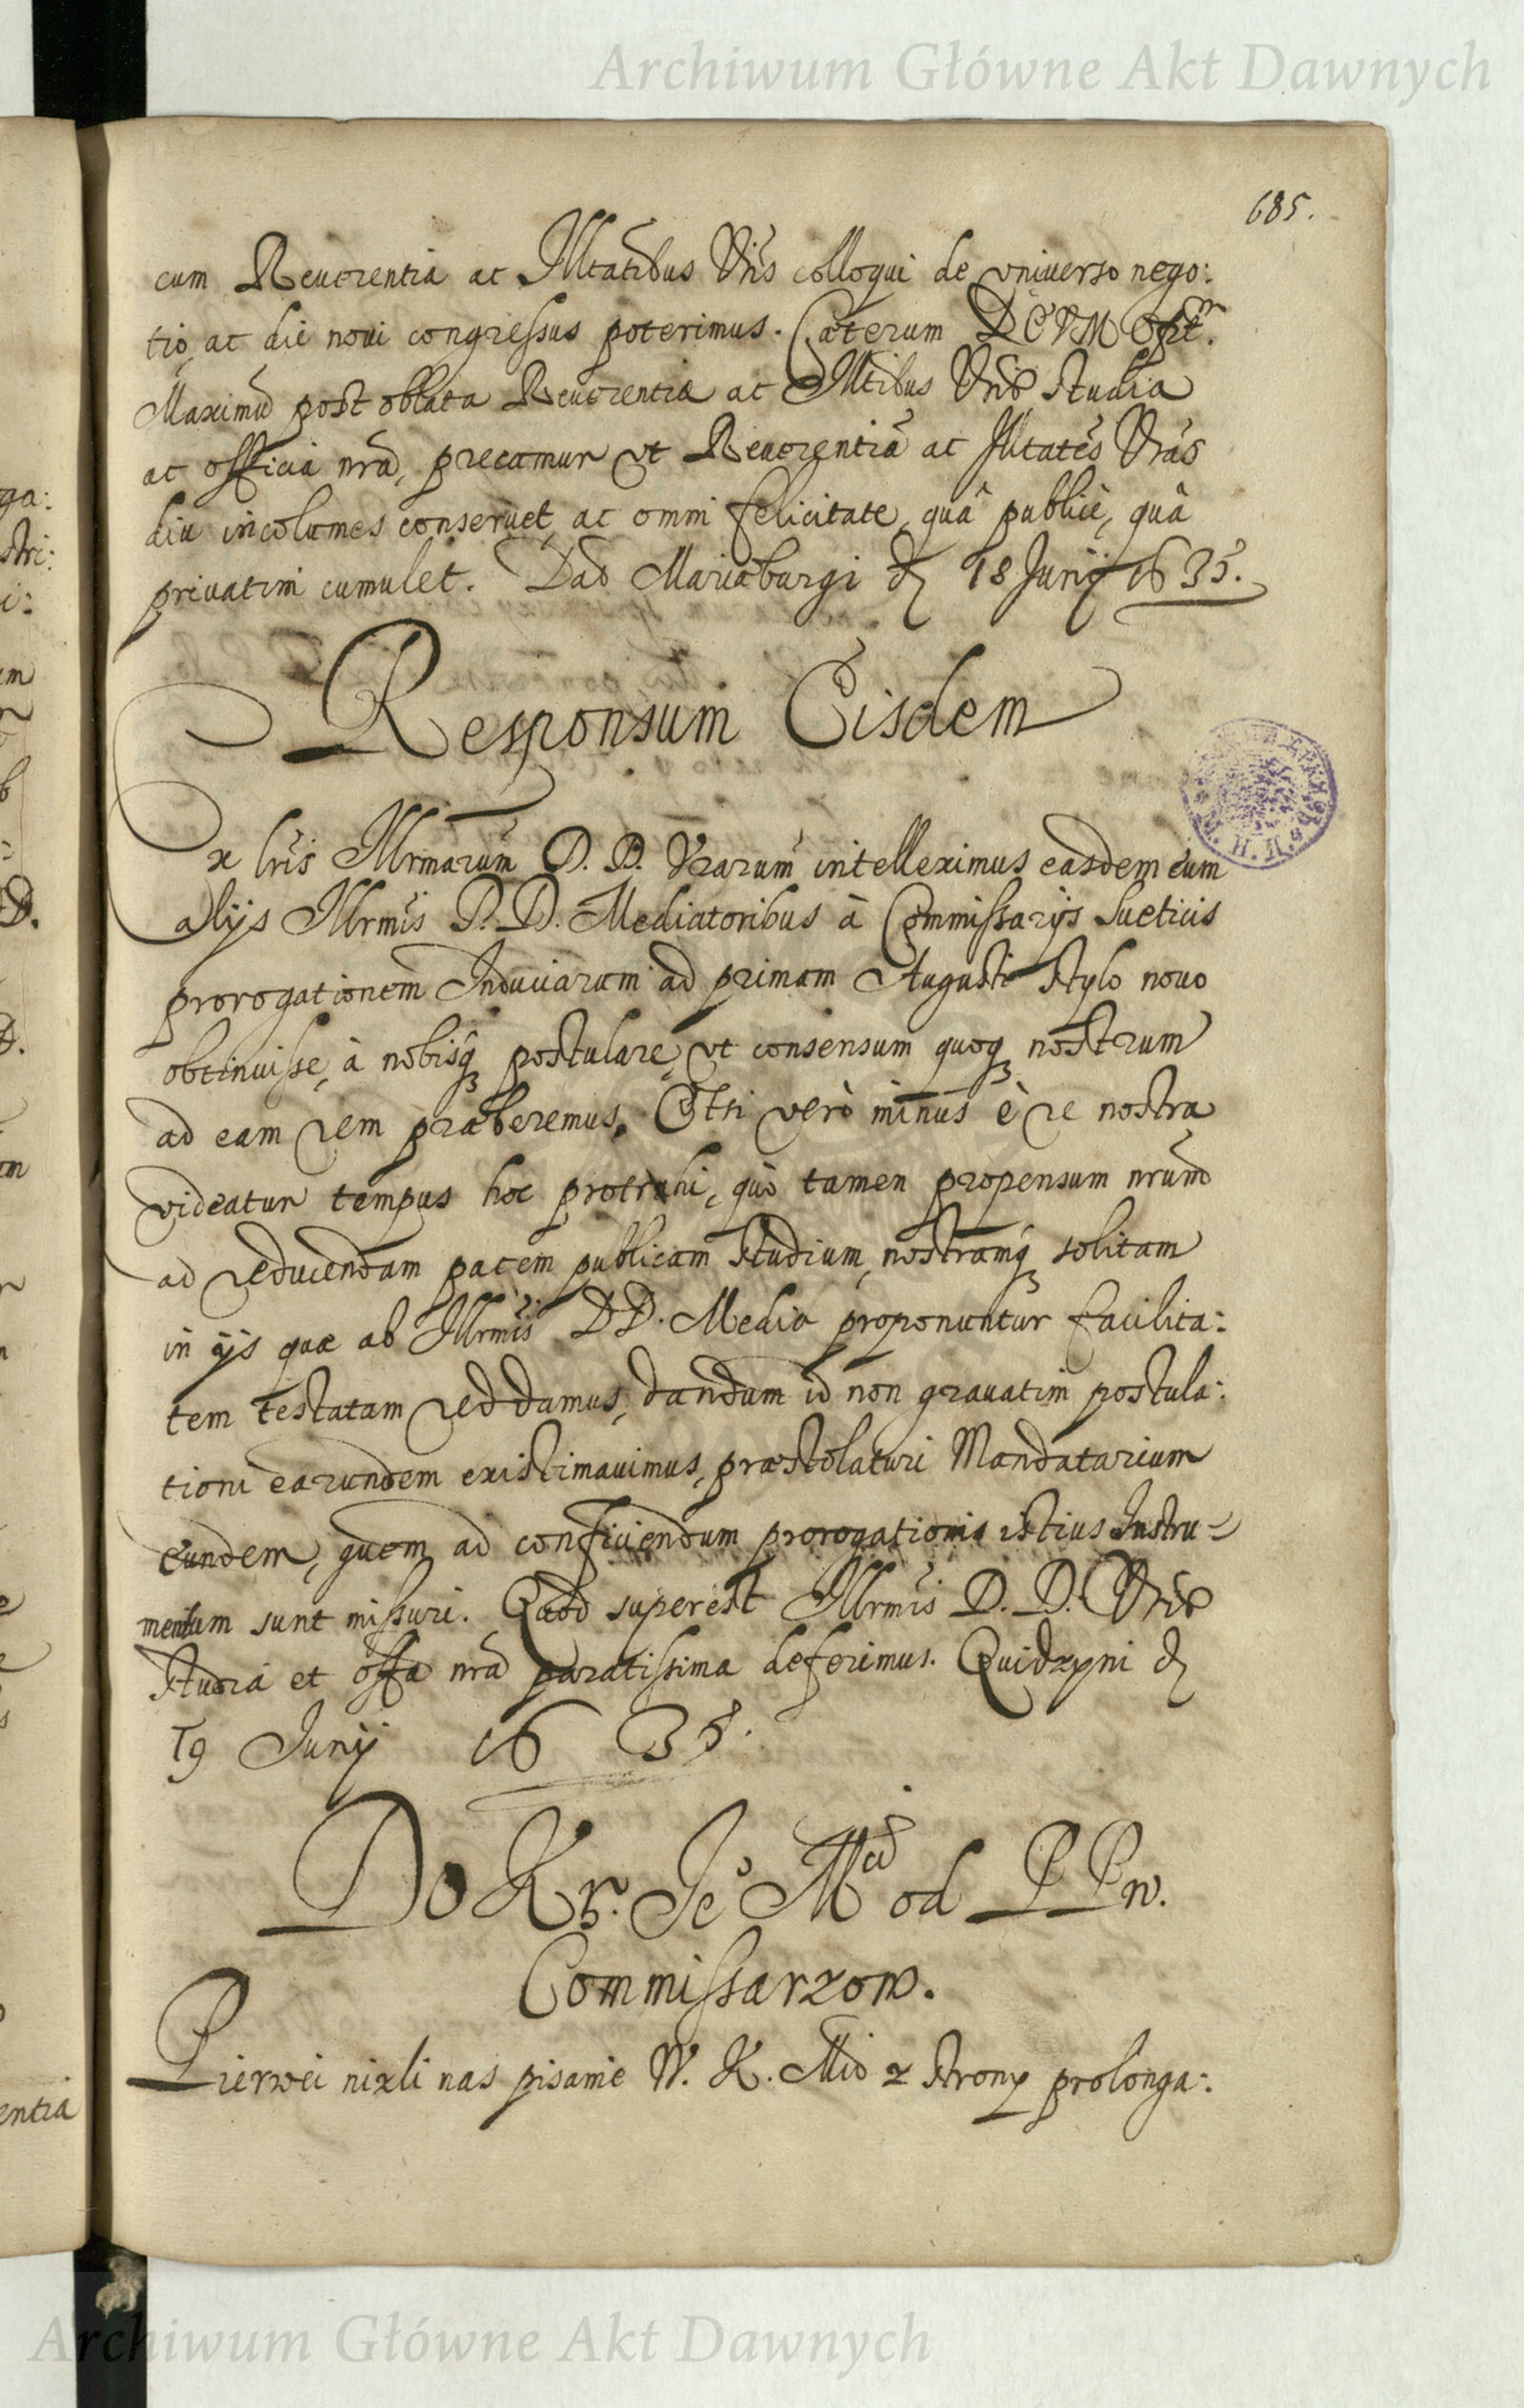 Archiwum Główne Akt Dawnych
685.
cum Reuerentia ac Illtatibus Vris colloqui de vniuerso nego:
tio, ac die noui congressus poterimus. Cæterum DEVM Opt.m
Maximū post oblata Reuerentiæ ac Illtibus Vris studia
ac officia nra, precamur vt Reuerentiā ac Illtates Vras
diu incolumes conseruet, ac omni felicitate, quâ publicè, quâ
priuatim cumulet. Dat Mariæburgi d 18 Junij 1635.
Responsum Eisdem
Ex lris Illrmarum D. D. Vrarum intelleximus easdem cum
alijs Illrmis D. D. Mediatoribus à Commissarijs Sueticis
prorogationem Induciarum ad primam Augusti stylo nouo
obtinuisse, à nobisq; postulare, vt consensum quoq; nostrum
ad eam rem præberemus. Etsi verò minus è re nostra
videatur tempus hoc protrahi, quò tamen propensum nrum
ad reducendam pacem publicam studium, nostramq; solitam
in ijs quæ ab Illrmis DD. Media proponuntur facilita:
tem testatam reddamus, dandum id non grauatim postula:
tioni earundem existimauimus, præstolaturi Mandatarium
eundem, quem ad conficiendum prorogationis istius Instru-
mentum sunt missuri. Quod superest Illrmis D. D. Vris
studia et offa nra paratissima deferimus. Quidzyni d
19 Junij 1635.
Do Kr. Je° Mci od PPw.
Commissarzow.
Pierwei nixli nas pisanie W. K. Mci z strony prolonga:
Archiwum Główne Akt Dawnych